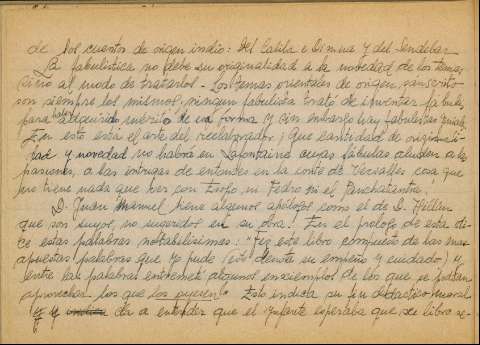 de los cuentos de origen indio: del Calila e Dimna y del Sendebar
La fabulística no debe su originalidad a la novedad de los temas,
sino al modo de tratarlos - Los temas orientales de origen, sanscrito
son siempre los mismos, ningun fabulista trató de inventar fábulas,
han adquirido mérito de la forma y sin embargo hay fabulistas
En esto está el arte del reelaborador, ¡Que cantidad de originali-
dad y novedad no habrá en Lafontaine cuyas fábulas aluden a las
pasiones, a las intrigas de entonces en la corte de Versalles cosa que
no tiene nada que ver con Esopo, ni Fedro ni el Panchatantra!
D. Juan Manuel tiene algunos apólogos como el de D. Illán
que son suyos, no sugeridos en su obra. En el prólogo de esta di-
ce estas palabras notabilísimas: "Fiz este libro compuesto de las mas
apuestas palabras que yo pude (esto denota su empeño y cuidado) y
entre las palabras entremetí algunos enxiemplos de los que se podrían
aprovechar los que los oyesen". Esto indica su fin didactico-moral
y da a entender que el infante esperaba que su libro se-